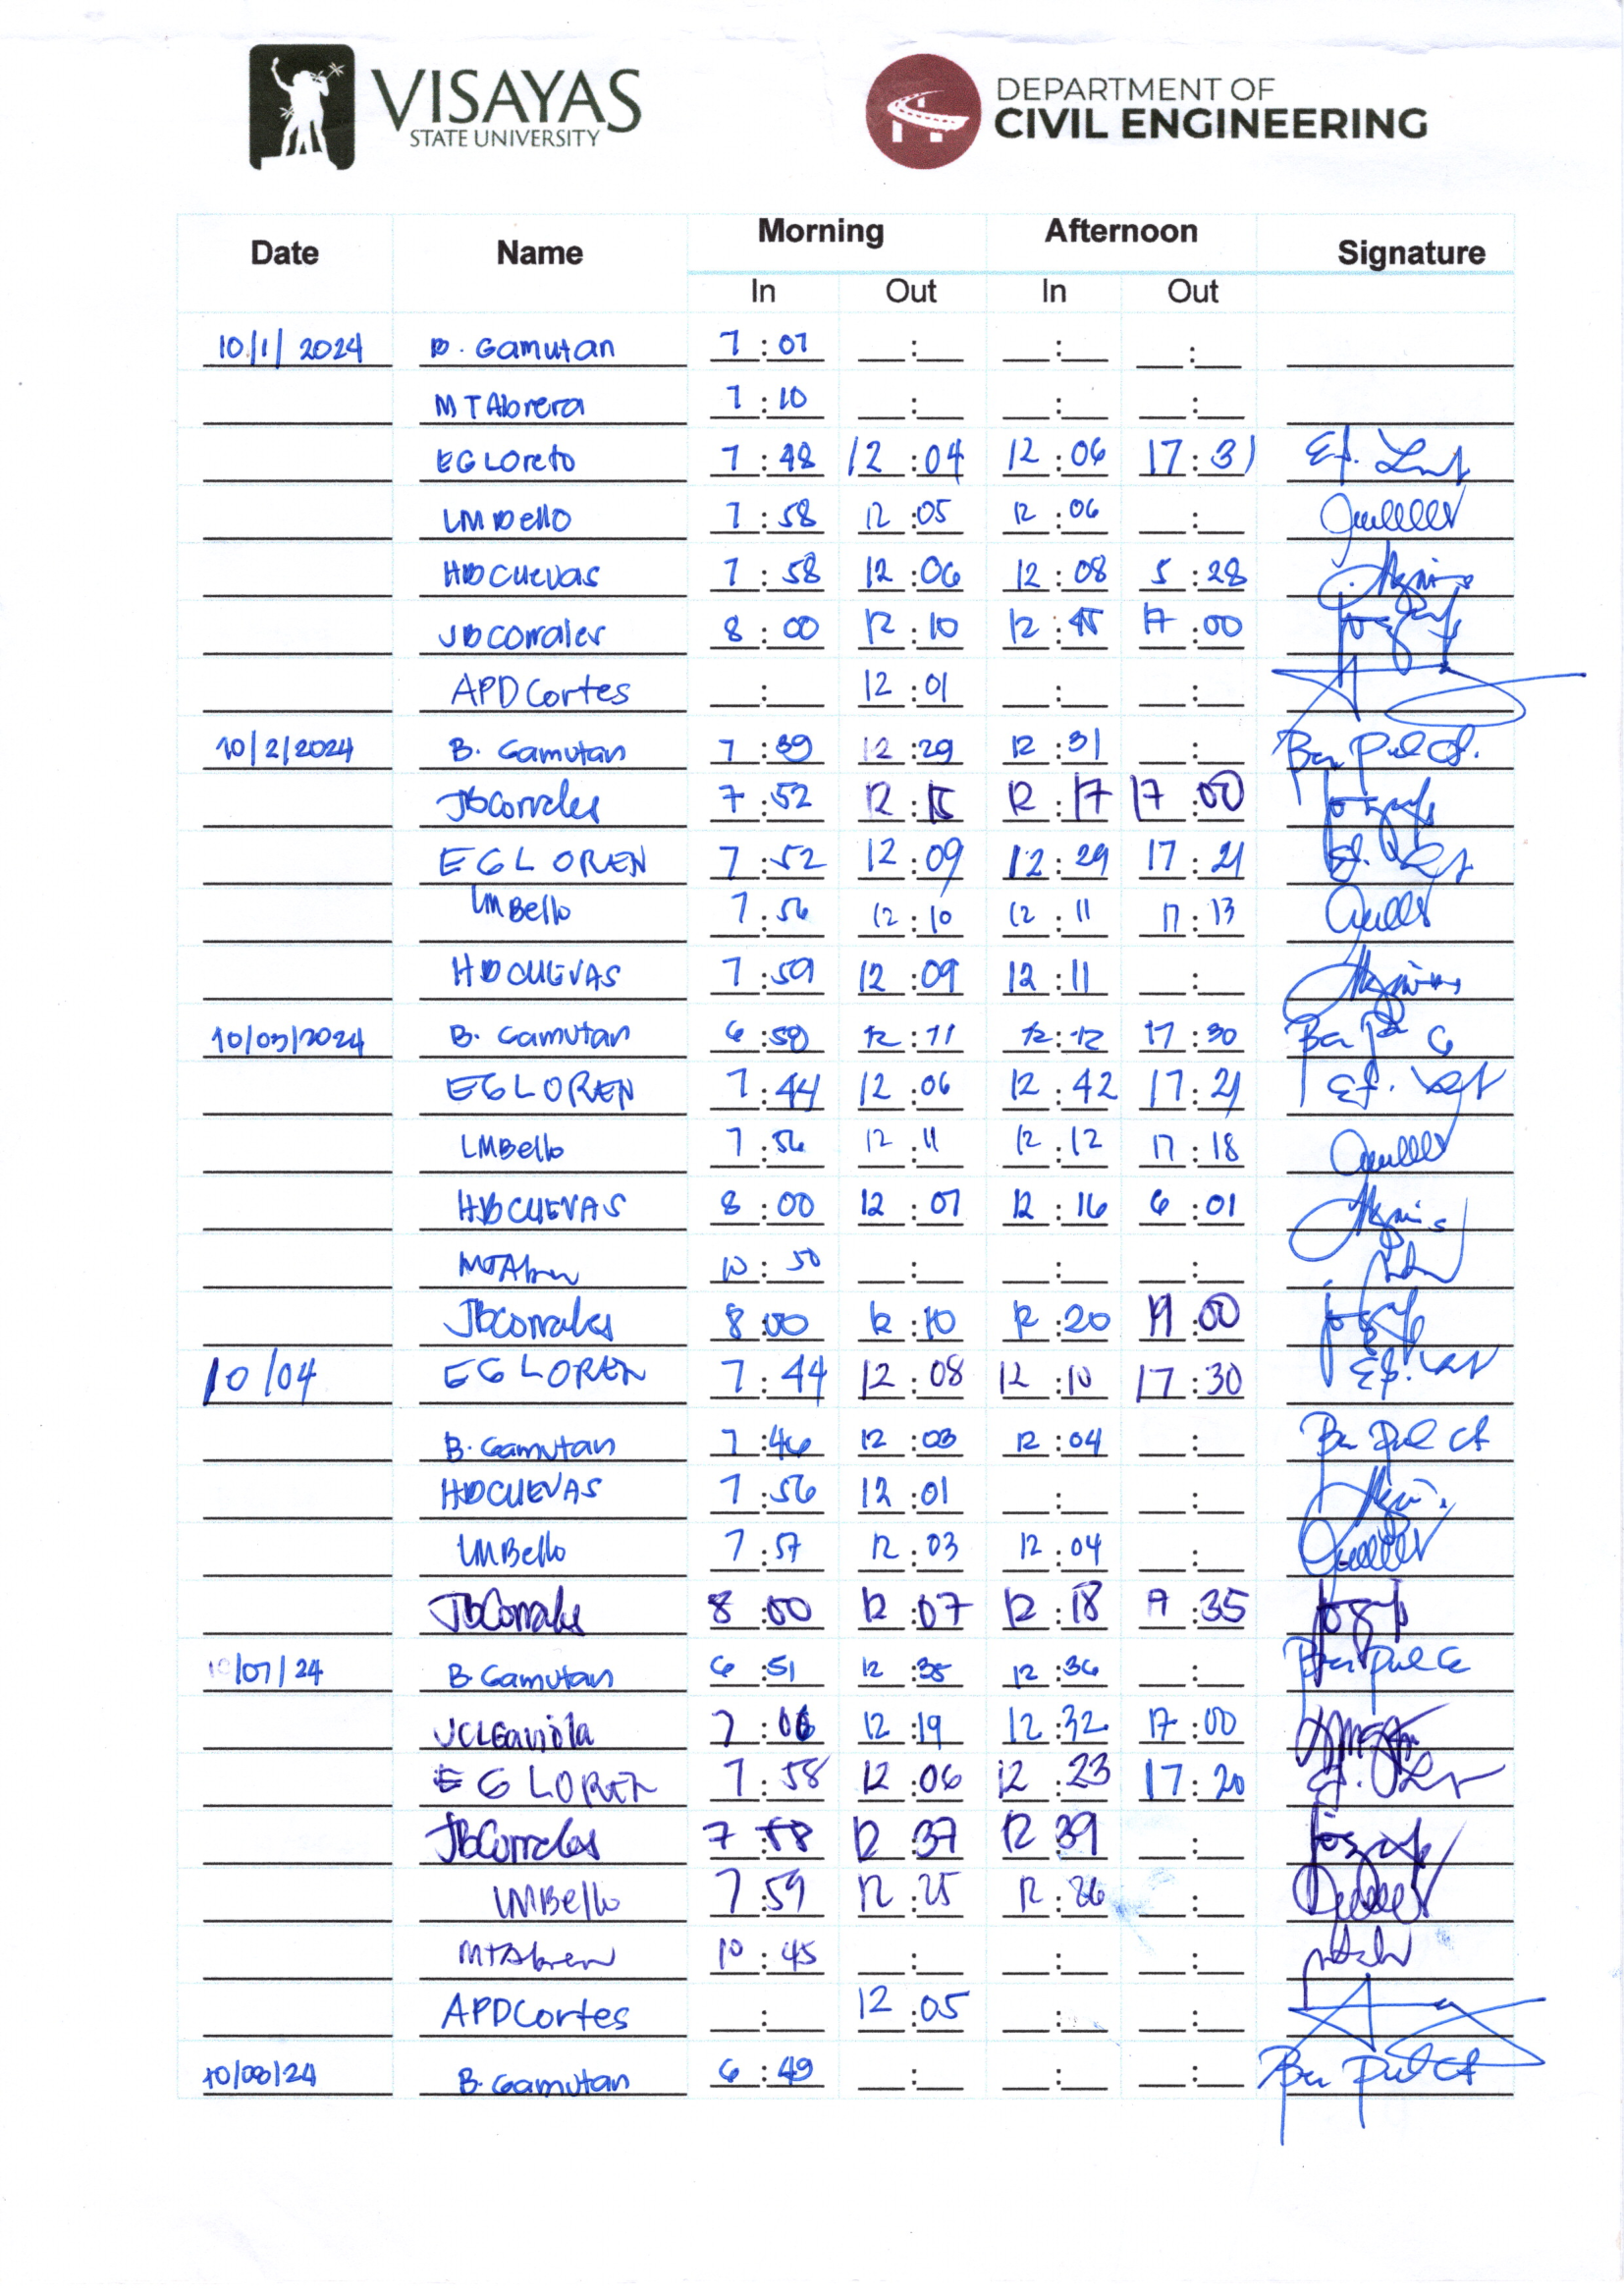 VISAYAS
STATE UNIVERSITY
DEPARTMENT OF
CIVIL ENGINEERING
Date Name Morning Afternoon Signature
In Out In Out
10/1/2024 B. Gamutan 7:07 __:__ __:__ __:__
MTAbrera 7:10 __:__ __:__ __:__
EGLoreto 7:48 12:04 12:06 17:31
LMBello 7:58 12:05 12:06 __:__
HDCuevas 7:58 12:06 12:08 5:28
JBCorrales 8:00 12:10 12:45 17:00
APDCortes __:__ 12:01 __:__ __:__
10/2/2024 B. Gamutan 7:39 12:29 12:31 __:__
JBCorrales 7:52 12:15 12:17 17:00
EGLOREN 7:52 12:09 12:29 17:21
LMBello 7:56 12:10 12:11 17:13
HDCUEVAS 7:59 12:09 12:11 __:__
10/03/2024 B. Gamutan 6:59 12:11 12:12 17:30
EGLOREN 7:44 12:06 12:42 17:21
LMBello 7:56 12:11 12:12 17:18
HDCUEVAS 8:00 12:07 12:16 6:01
10:50 __:__ __:__ __:__
JBCorrales 8:00 12:10 12:20 :00
10/04 EGLOREN 7:44 12:08 12:10 17:30
B. Gamutan 7:46 12:03 12:04 __:__
HDCUEVAS 7:56 12:01 __:__ __:__
LMBello 7:57 12:03 12:04 __:__
JBCorrales 8:00 12:07 12:18 :35
10/07/24 B. Gamutan 6:51 12:35 12:36 __:__
JCLGaviola 7:06 12:19 12:32 17:00
EGLOREN 7:58 12:06 12:23 17:20
JBCorrales 7:58 12:37 12:39 __:__
LMBello 7:59 12:25 12:26 __:__
10:45 __:__ __:__ __:__
APDCortes __:__ 12:05 __:__ __:__
10/08/24 B. Gamutan 6:49 __:__ __:__ __:__